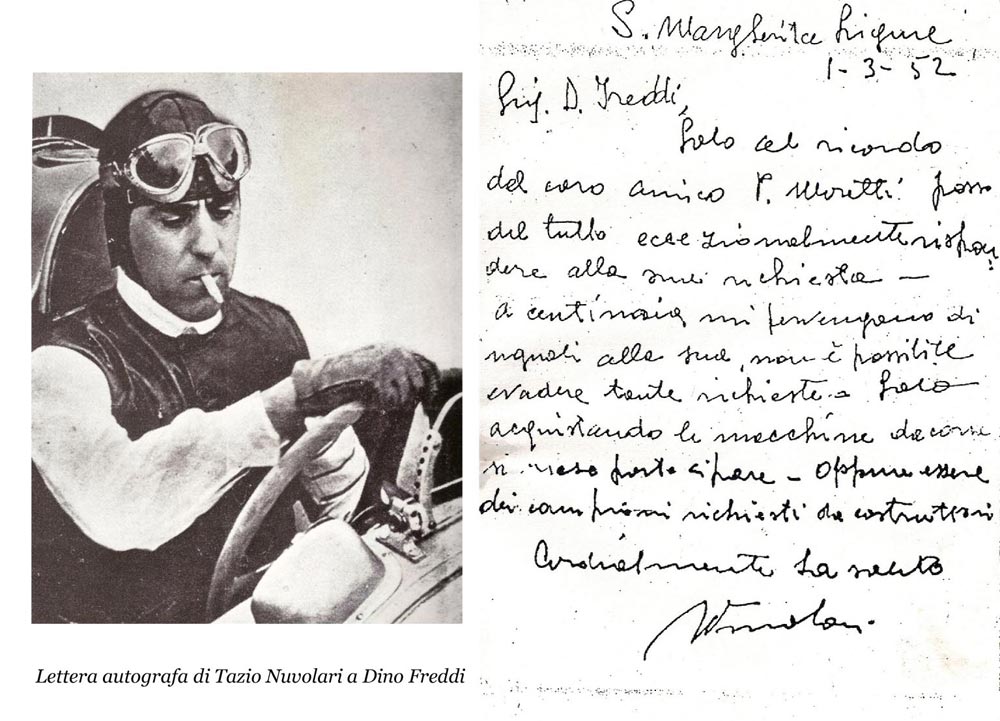 S. Margherita Ligure
1-3-52
Sig. D. Freddi,
Solo al ricordo
del caro amico P. Moretti posso
del tutto eccezionalmente rispon
dere alla sua richiesta —
a centinaia mi pervengano di
uguali alla sua, non è possibile
evadere tante richieste - Solo
acquistando le macchine da corse
si possa partecipare - Oppure essere
dei campioni richiesti da costruttori
Cordialmente La saluto
Nuvolari
Lettera autografa di Tazio Nuvolari a Dino Freddi